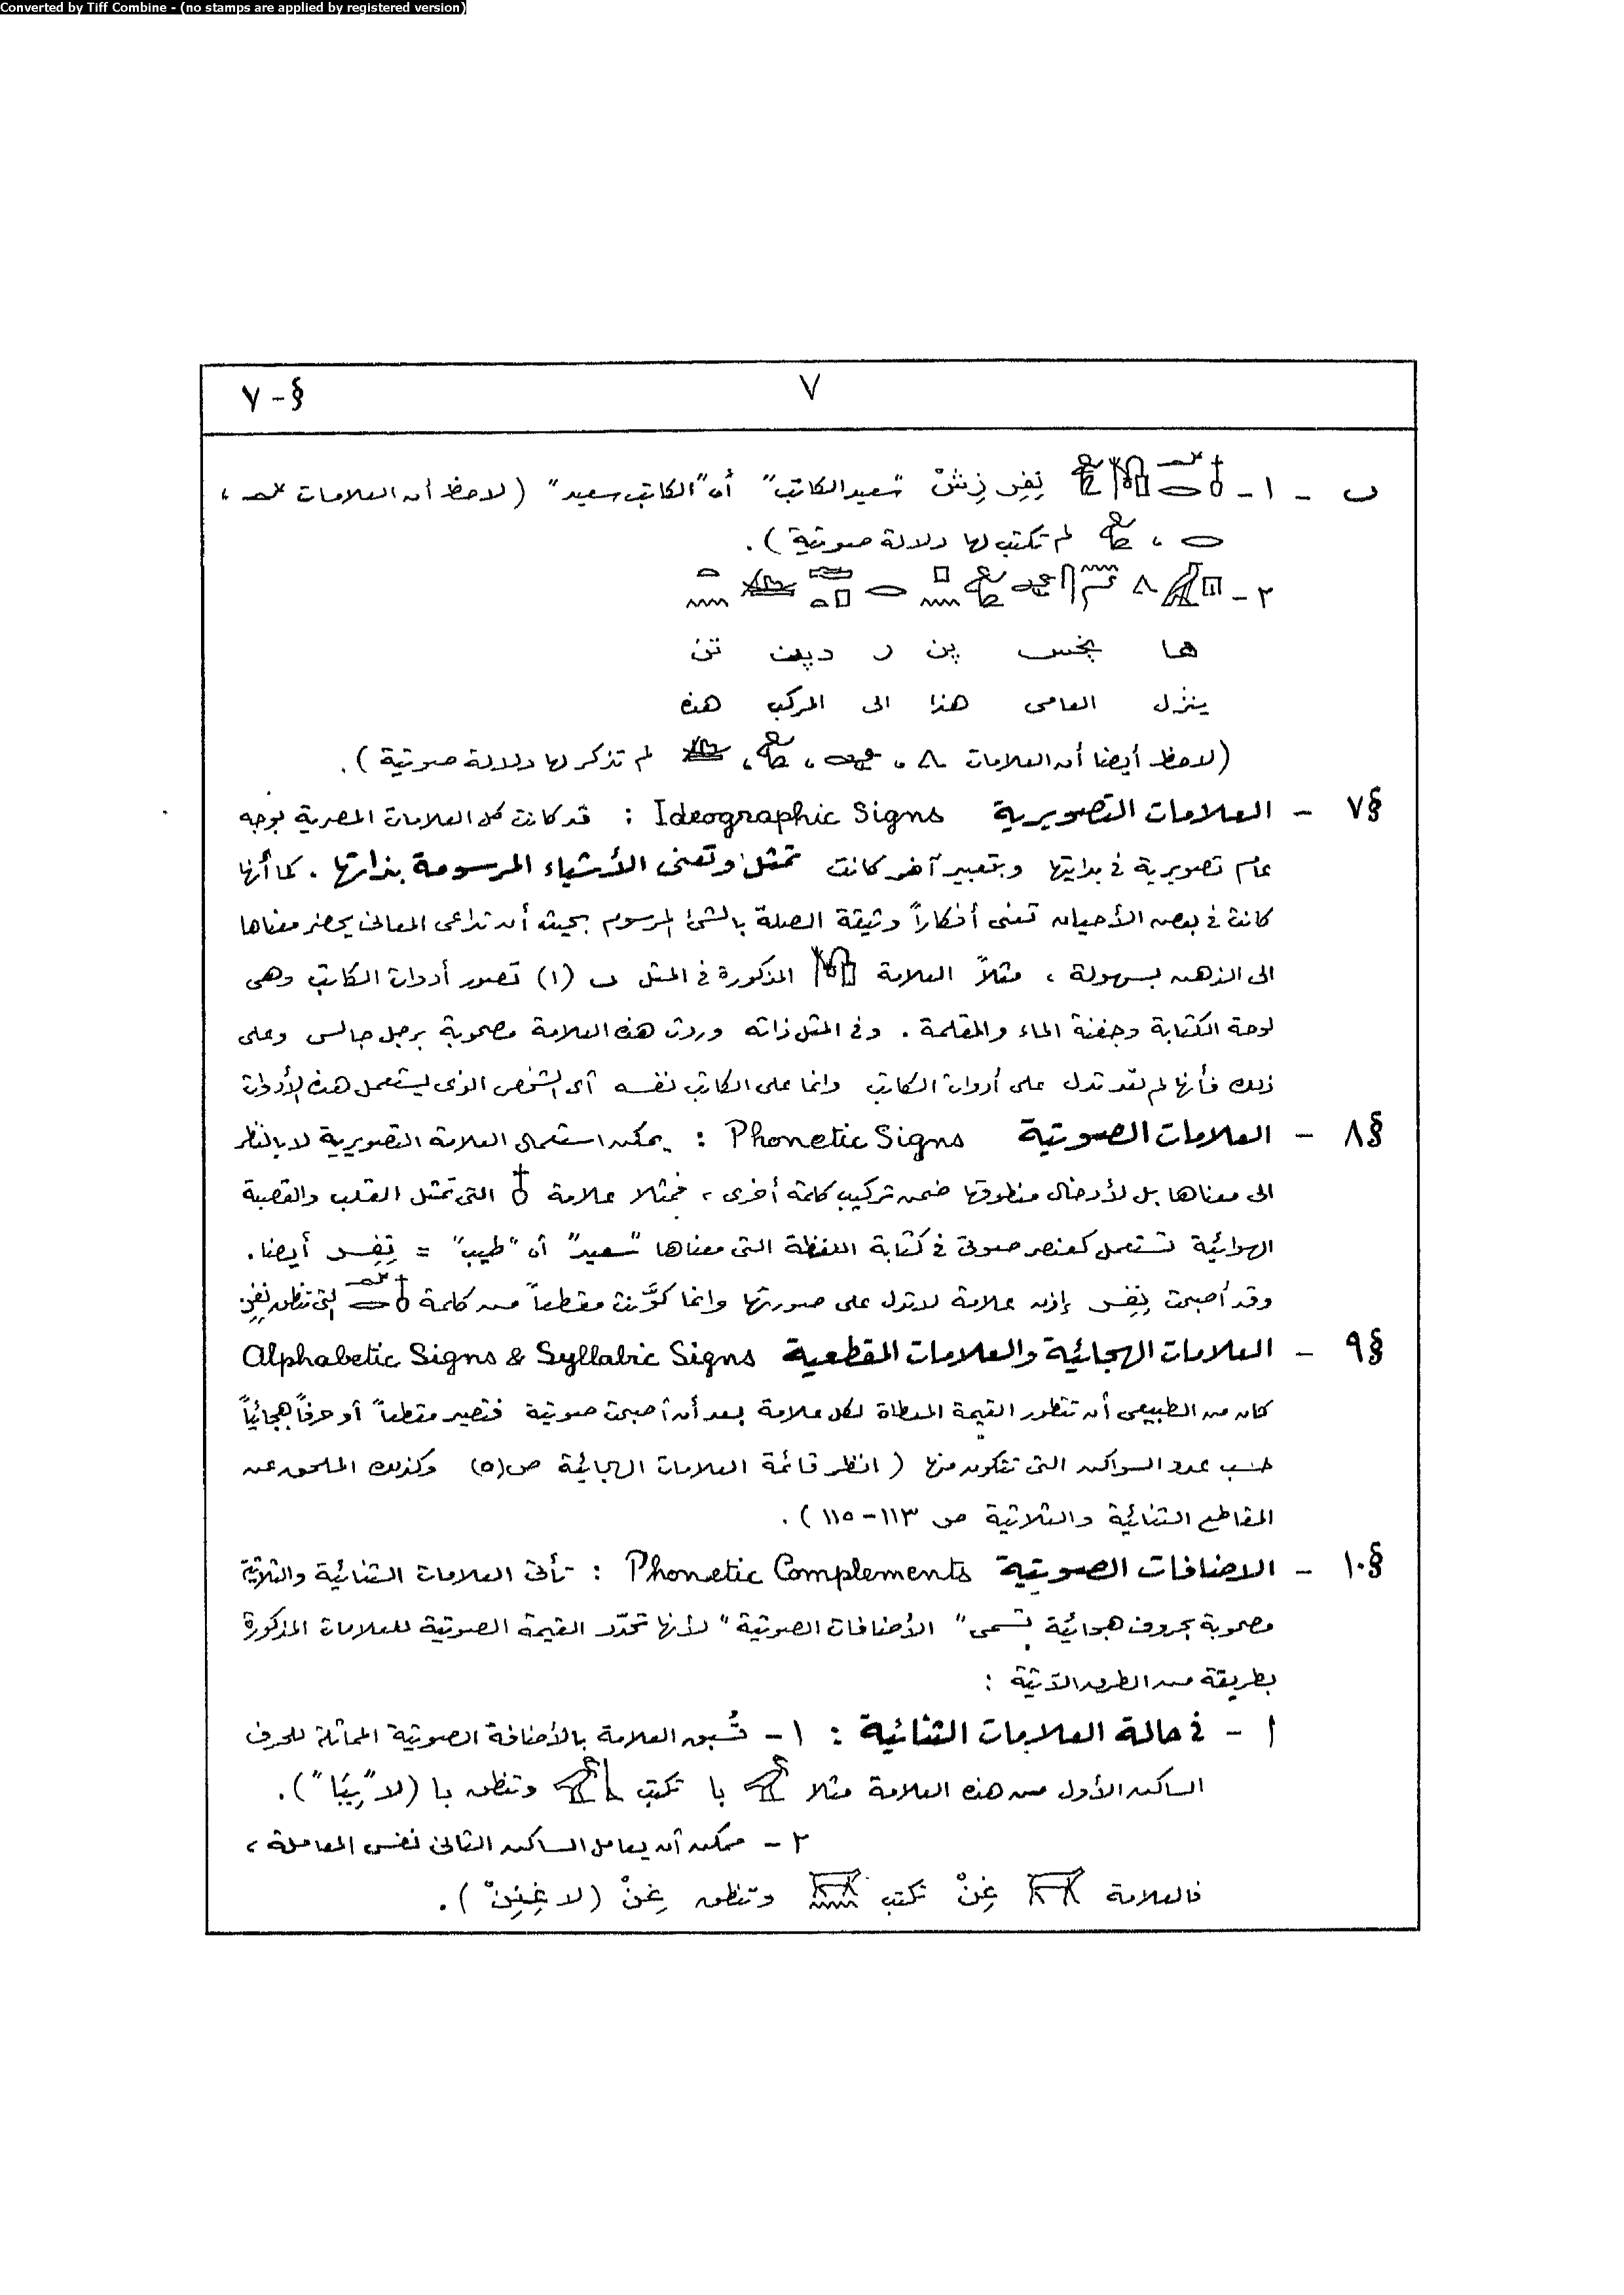 Converted by Tiff Combine - (no stamps are applied by registered version)
٧
§-٧
ب - ١- نِفِر زِشْ "سعيد الكاتب" أى "الكاتب سعيد" (لاحظ أن العلامات ،
، لم تكتب لها دلالة صوتية).
٢-
ها بخس پن ر دپت تن
ينزل العامى هذا الى المركب هذه
(لاحظ أيضا أن العلامات ، ، ، لم تذكر لها دلالة صوتية).
§٧ - العلامات التصويرية Ideographic Signs : قد كانت كل العلامات المصرية بوجه
عام تصويرية فى بدايتها وبتعبير آخر كانت تمثل وتعنى الأشياء المرسومة بذاتها . كما أنها
كانت فى بعض الأحيان تعنى أفكاراً وثيقة الصلة بالشئ المرسوم بحيث أن تداعى المعانى يحضر معناها
الى الذهن بسهولة ، مثلاً العلامة المذكورة فى المثل ب (١) تصور أدوات الكاتب وهى
لوحة الكتابة وجفنة الماء والمقلمة . وفى المثل ذاته وردت هذه العلامة مصحوبة برجل جالس وعلى
ذلك فأنها لم تعد تدل على أدوات الكاتب وانما على الكاتب نفسه أى الشخص الذى يستعمل هذه الأدوات
§٨ - العلامات الصوتية Phonetic Signs : يمكن استعمال العلامة التصويرية لا بالنظر
الى معناها بل لأدخال منطوقها ضمن تركيب كلمة أخرى ، فمثلا علامة التى تمثل القلب والقصبة
الهوائية تستعمل كعنصر صوتى فى كتابة اللفظة التى معناها "سعيد" أى "طيب" = نِفِر أيضا.
وقد أصبحت نِفِر إذن علامة لا تدل على صورتها وانما كوَّنت مقطعاً من كلمة التى تنطق نِفِر
§٩ - العلامات الهجائية والعلامات المقطعية Alphabetic Signs & Syllabic Signs
كان من الطبيعى أن تتطور القيمة المعطاة لكل علامة بعد أن أصبحت صوتية فتصير مقطعاً أو حرفاً هجائياً
حسب عدد السواكن التى تتكون منها ( انظر قائمة العلامات الهجائية ص(٥) وكذلك الملحق عن
المقاطع الثنائية والثلاثية ص ١١٣-١١٥ ).
§١٠ - الاضافات الصوتية Phonetic Complements : تأتى العلامات الثنائية والثلاثية
مصحوبة بحروف هجائية تسمى "الأضافات الصوتية" لأنها تحدّد القيمة الصوتية للعلامات المذكورة
بطريقة من الطرق الآتية :
ا - فى حالة العلامات الثنائية : ١- تُسبق العلامة بالأضافة الصوتية المماثلة للحرف
الساكن الأول من هذه العلامة مثلا با تكتب وتنطق با (لا "بِبَا").
٢- ممكن أن يعامل الساكن الثانى نفس المعاملة ،
فالعلامة غِنْ تكتب وتنطق غِنْ (لا غِنِنْ ).